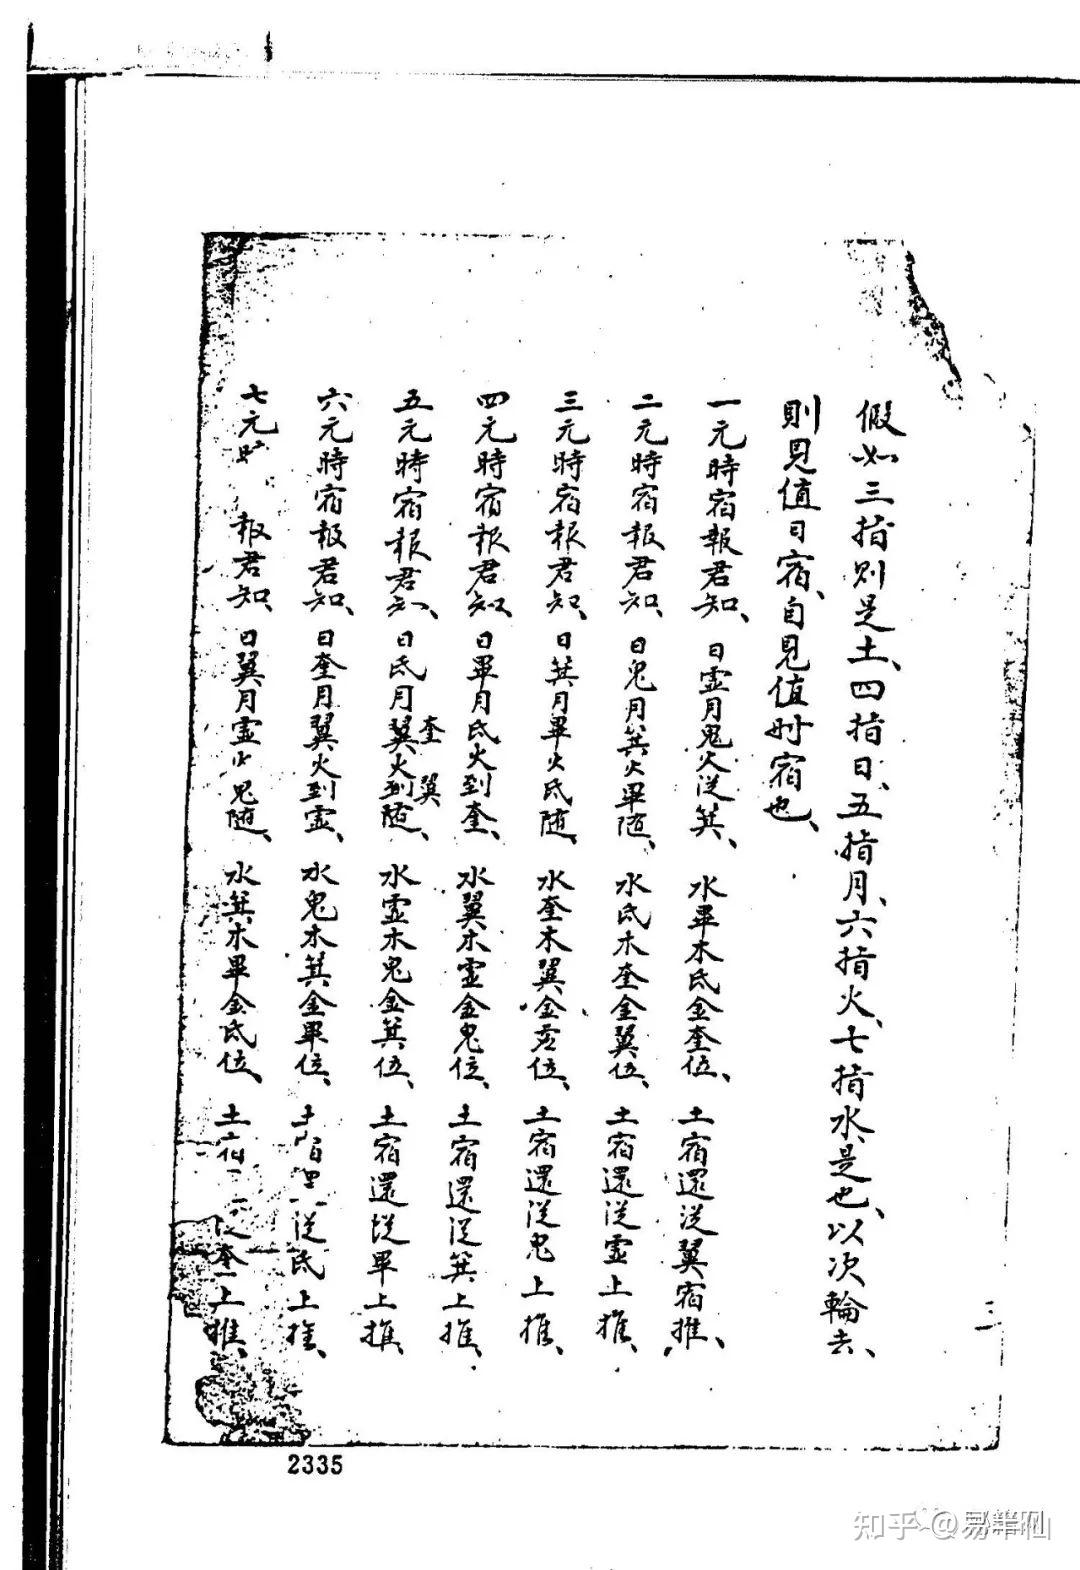 假如三指則是土、四指日、五指月、六指火、七指水是也、以次輪去、
則見值日宿、自見值时宿也、
一元時宿報君知、日虛月鬼火從箕、水畢木氐金奎位、土宿還從翼宿推、
二元時宿報君知、日鬼月箕火畢随、水氐木奎金翼位、土宿還從虛上推、
三元時宿報君知、日箕月畢火氐随、水奎木翼金虛位、土宿還從鬼上推、
四元時宿報君知、日畢月氐火到奎、水翼木虛金鬼位、土宿還從箕上推、
五元時宿報君知、日氐月翼火到随、水虛木鬼金箕位、土宿還從畢上推、
奎 翼
六元時宿報君知、日奎月翼火到虛、水鬼木箕金畢位、土宿 從氐上推、
七元 報君知、日翼月虛火鬼随、水箕木畢金氐位、土宿 從奎上推、
三
2335
知乎 @易筆仙